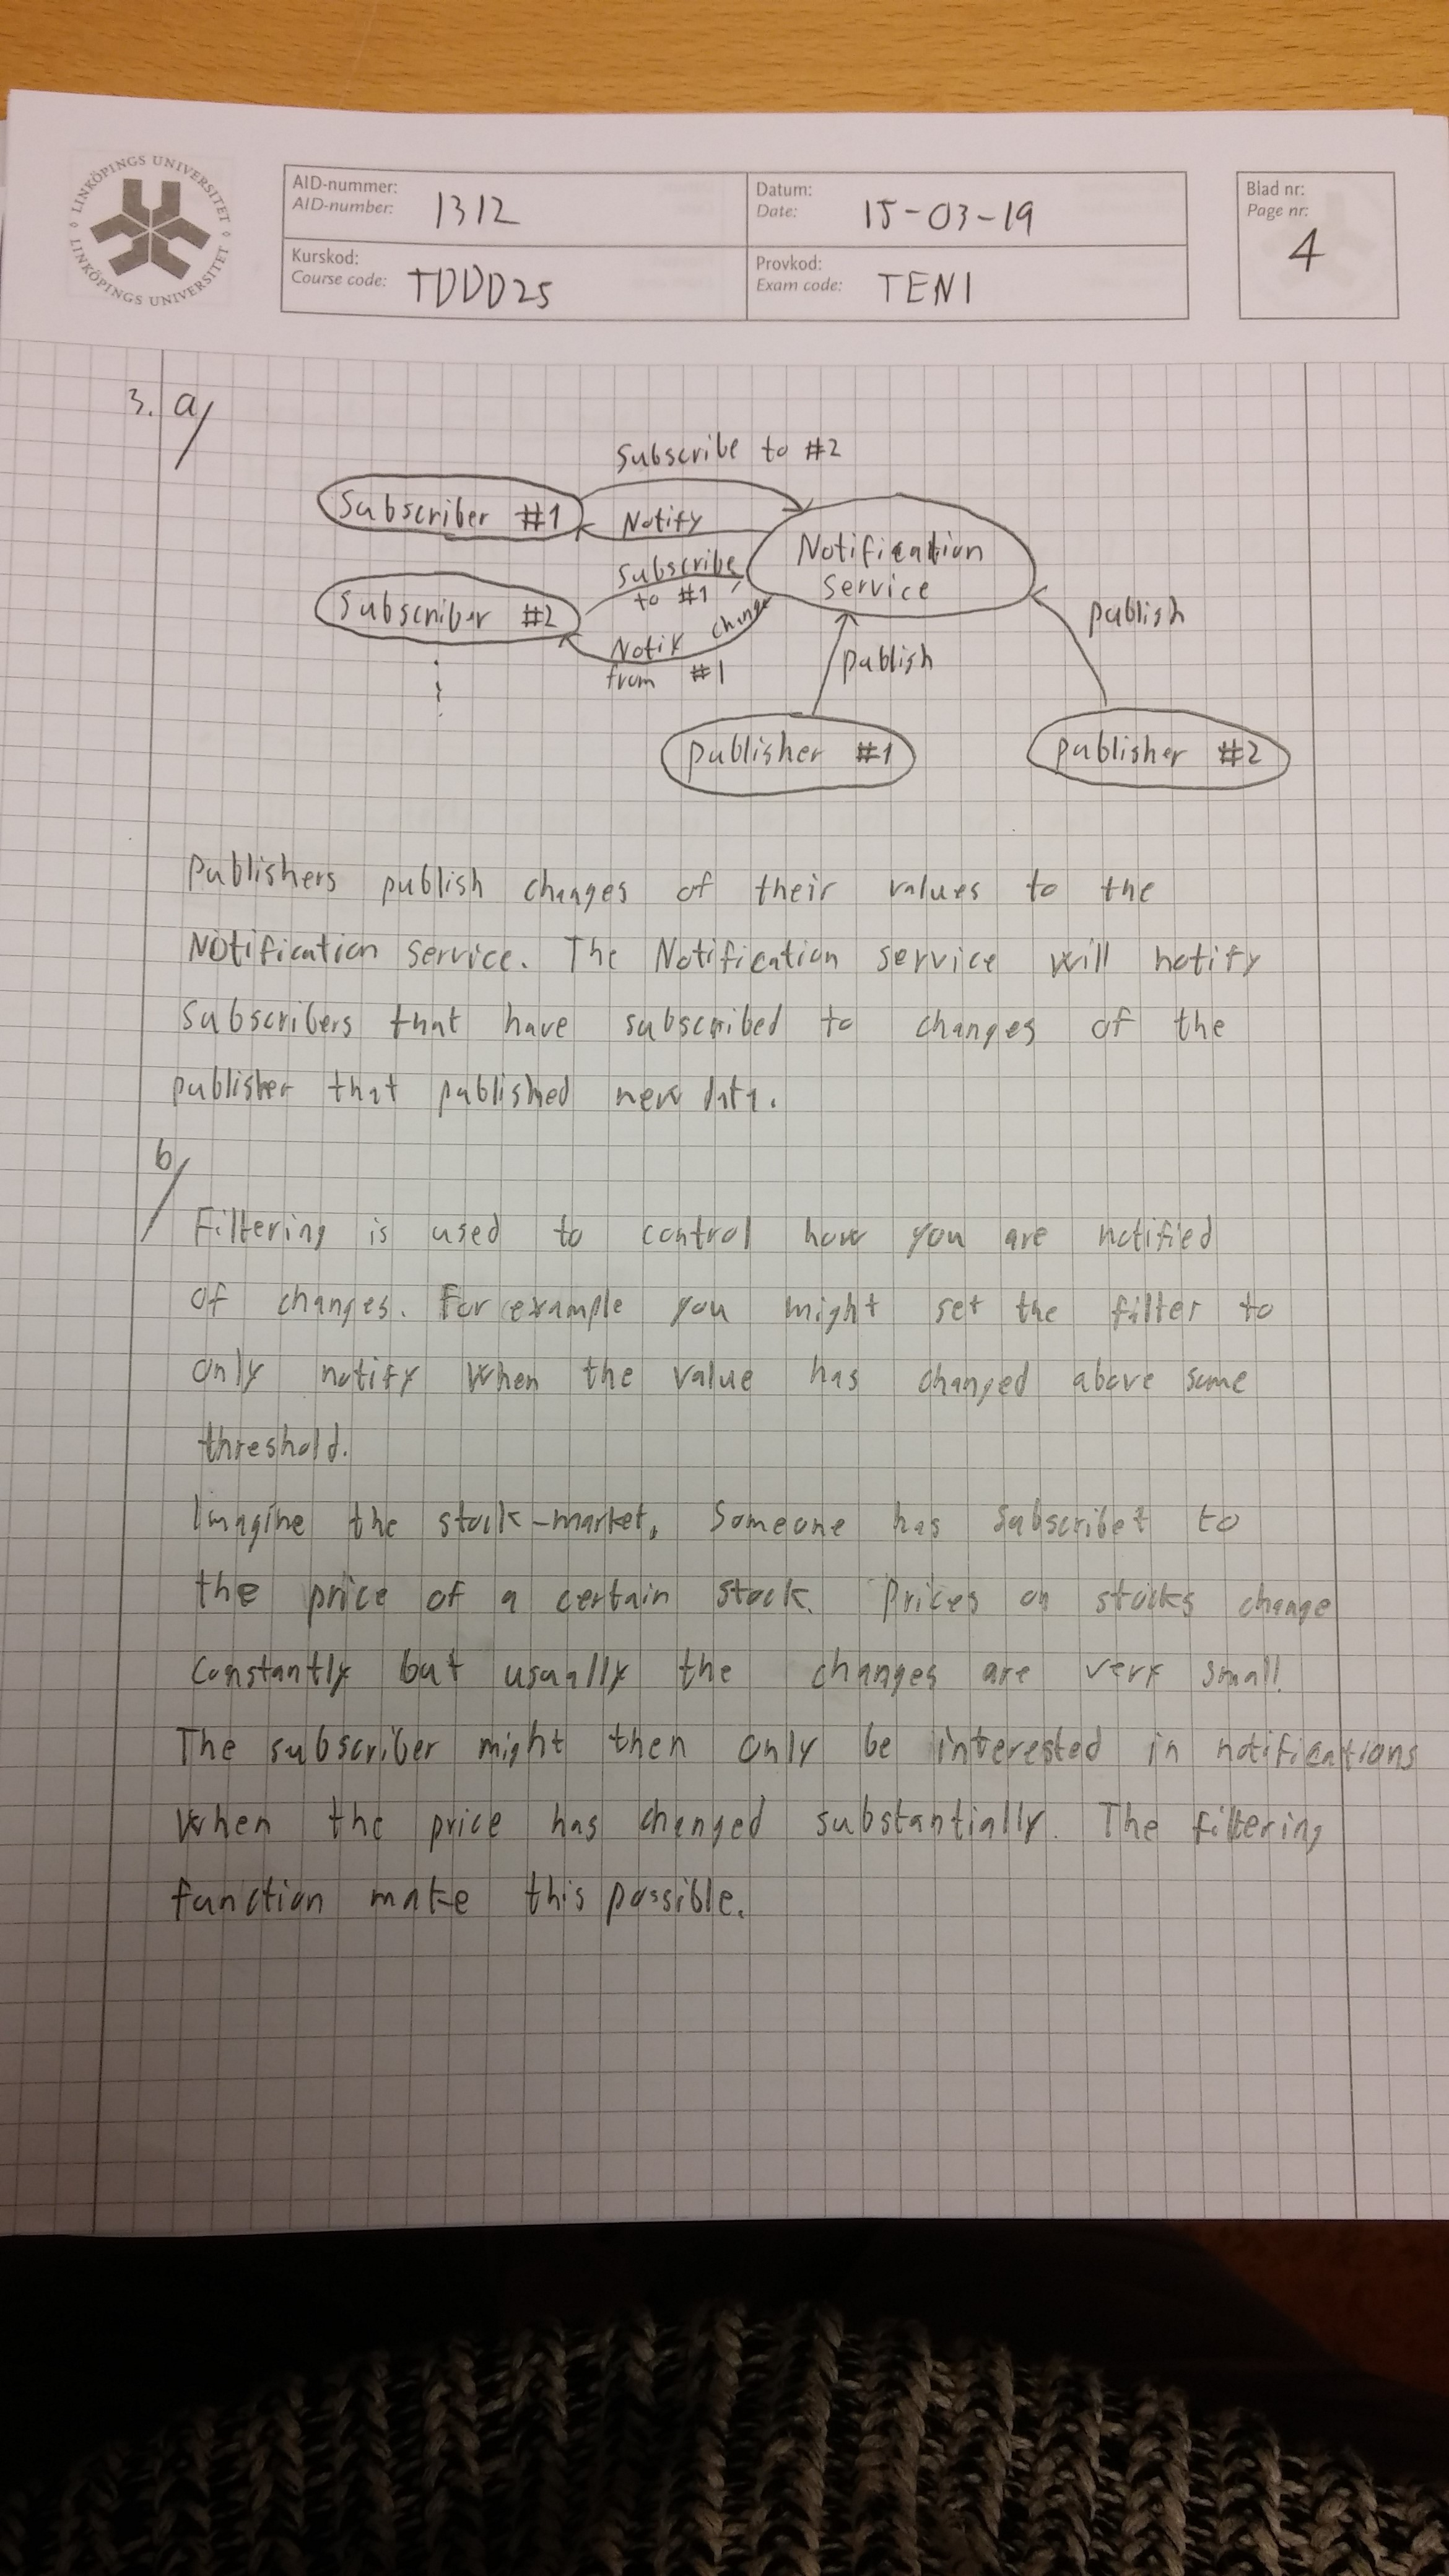 LINKÖPINGS UNIVERSITET
LINKÖPINGS UNIVERSITET
AID-nummer:
AID-number: 1312
Datum:
Date: 15-03-19
Blad nr:
Page nr:
4
Kurskod:
Course code: TDDD25
Provkod:
Exam code: TEN1
3. a/
Subscribe to #2
Subscriber #1
Notify
Notification
service
Subscribe
to #1
Subscriber #2
change
Notif
from #1
publish
publish
publisher #1
publisher #2
Publishers publish changes of their values to the
Notification service. The Notification service will notify
subscribers that have subscribed to changes of the
publisher that published new data.
b/
Filtering is used to control how you are notified
of changes. For example you might set the filter to
only notify when the value has changed above some
threshold.
Imagine the stock-market. Someone has subscribet to
the price of a certain stock. Prices on stocks change
constantly but usually the changes are very small.
The subscriber might then only be interested in notifications
when the price has changed substantially. The filtering
function make this possible.